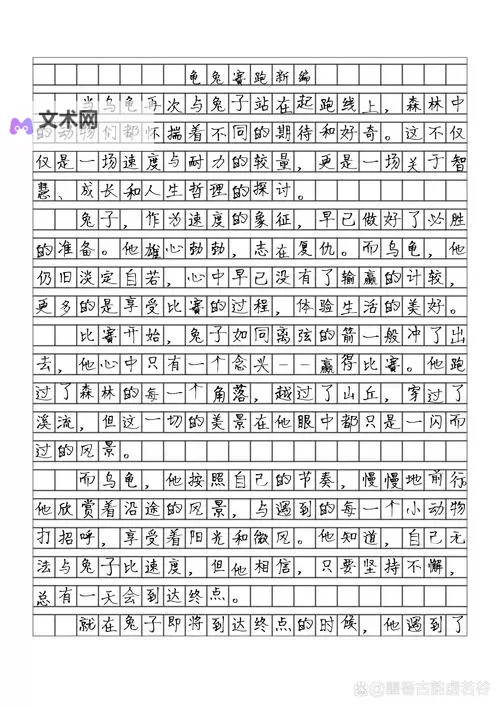 龟兔赛跑新编
当乌龟再次与兔子站在起跑线上，森林中
文术网
的动物们都怀揣着不同的期待和好奇。这不仅
仅是一场速度与耐力的较量，更是一场关于智
慧、成长和人生哲理的探讨。
兔子，作为速度的象征，早已做好了必胜
的准备。他雄心勃勃，志在复仇。而乌龟，他
仍旧淡定自若，心中早已没有了输赢的计较，
更多的是享受比赛的过程，体验生活的美好。
比赛开始，兔子如同离弦的箭一般冲了出
去，他心中只有一个念头——赢得比赛。他跑
过了森林的每一个角落，越过了山丘，穿过了
溪流，但这一切的美景在他眼中都只是一闪而
过的风景。
而乌龟，他按照自己的节奏，慢慢地前行
他欣赏着沿途的风景，与遇到的每一个小动物
打招呼，享受着阳光和微风。他知道，自己无
法与兔子比速度，但他相信，只要坚持不懈，
总有一天会到达终点。
就在兔子即将到达终点的时候，他遇到了